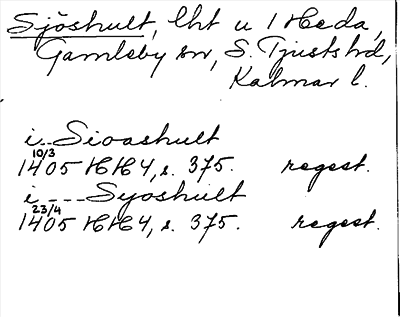 Sjöshult, lht u 1 Heda,
Gamleby sn, S. Tjusts hd,
Kalmar l.
i - Sioashult
10/3
1405 HH4, s. 375. regest.
i --- Syoshult
23/4
1405 HH4, s. 375. regest.